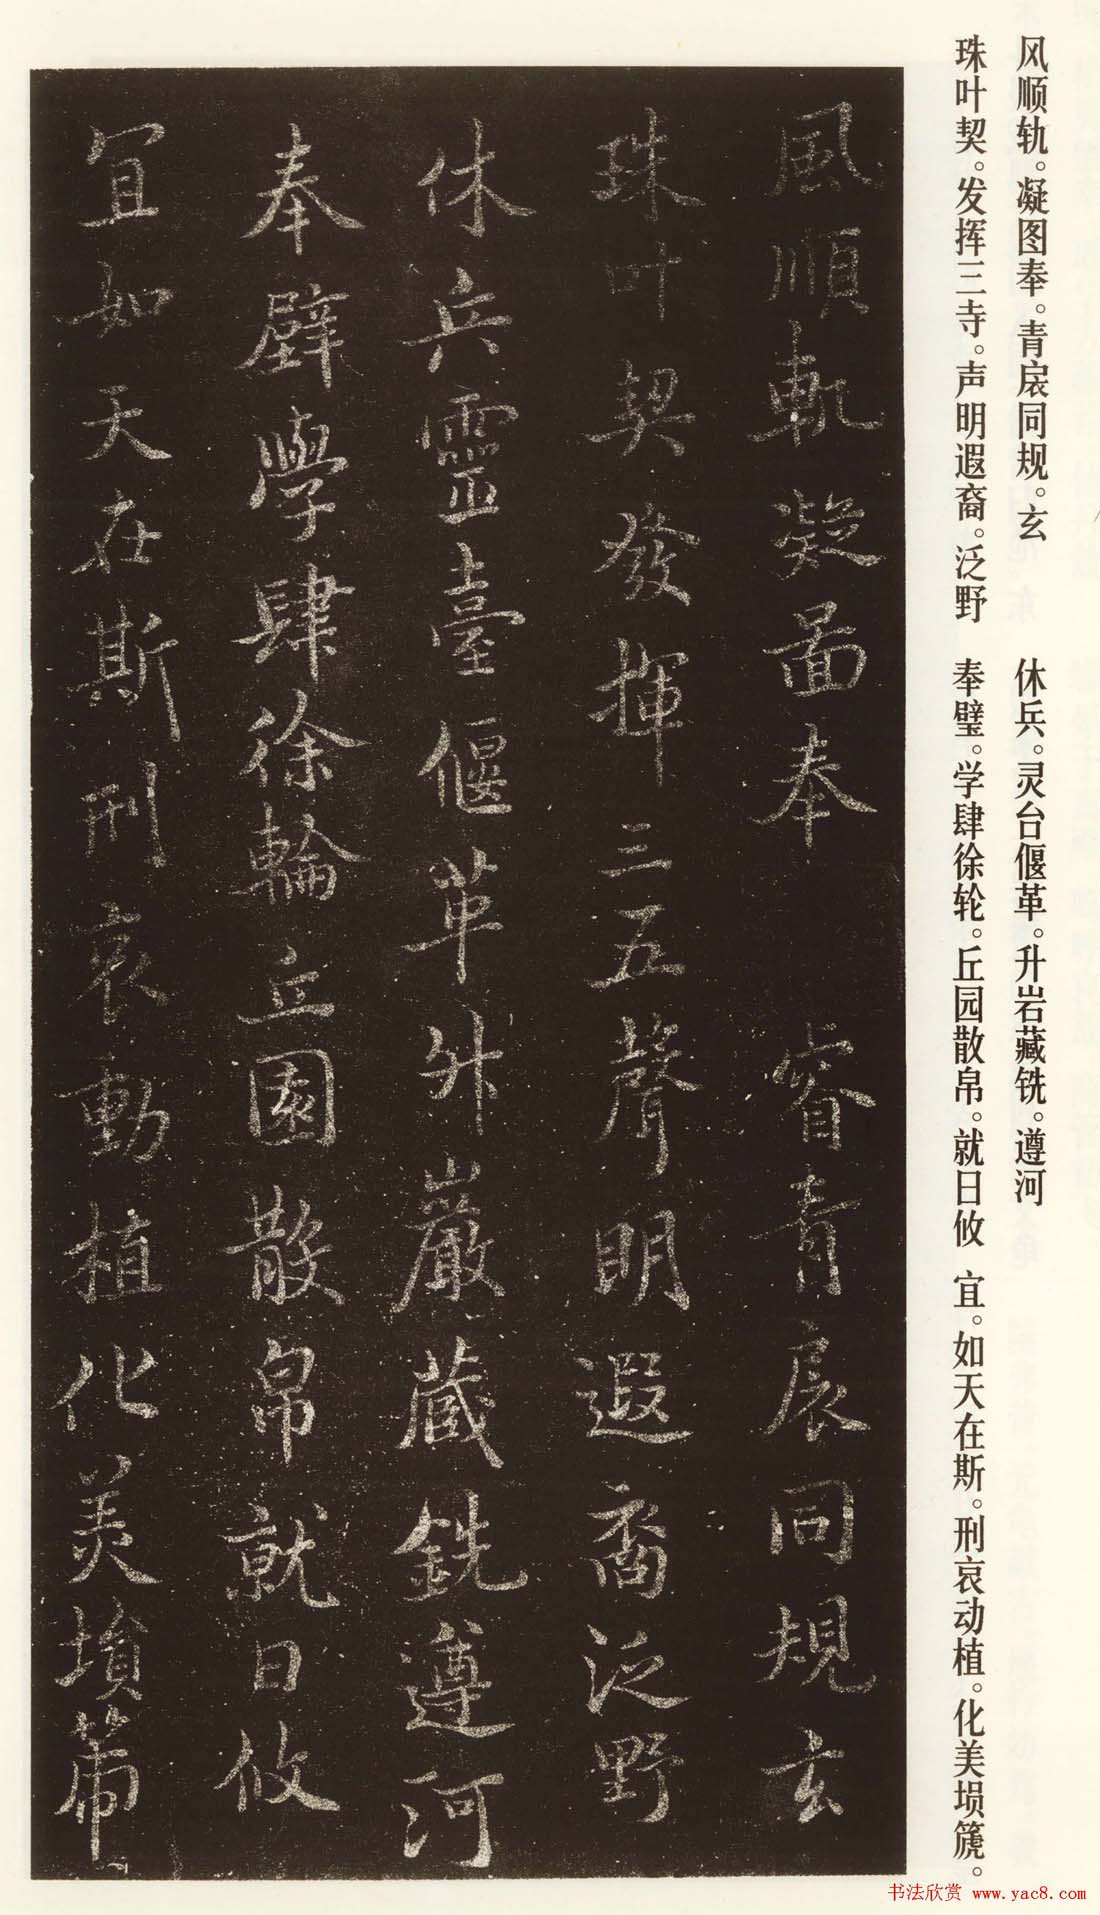 风顺轨。凝图奉。青扆同规。玄
珠叶契。发挥三寺。声明遐裔。泛野
休兵。灵台偃革。升岩藏铣。遵河
奉璧。学肆徐轮。丘园散帛。就日攸
宜。如天在斯。刑哀动植。化美埙篪。
風順軌凝圖奉睿青扆同規玄
珠叶契發揮三五聲明遐裔泛野
休兵靈臺偃革升巖藏銑遵河
奉璧學肆徐輪丘園散帛就日攸
宜如天在斯刑哀動植化美塤
书法欣赏 www.yac8.com